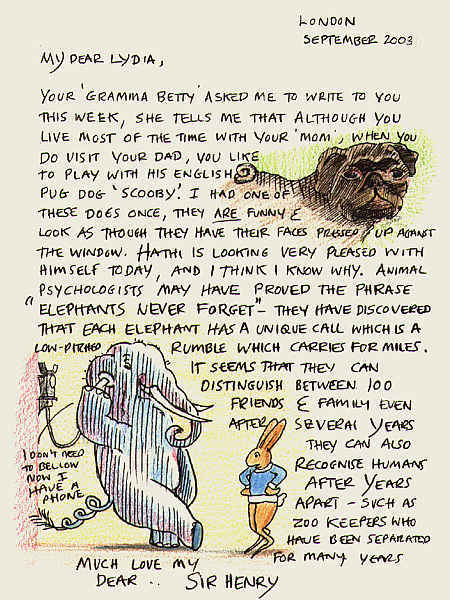 LONDON
SEPTEMBER 2003
MY DEAR LYDIA,
YOUR 'GRAMMA BETTY' ASKED ME TO WRITE TO YOU
THIS WEEK, SHE TELLS ME THAT ALTHOUGH YOU
LIVE MOST OF THE TIME WITH YOUR 'MOM', WHEN YOU
DO VISIT YOUR DAD, YOU LIKE
TO PLAY WITH HIS ENGLISH
PUG DOG 'SCOOBY'. I HAD ONE OF
THESE DOGS ONCE, THEY ARE FUNNY &
LOOK AS THOUGH THEY HAVE THEIR FACES PRESSED UP AGAINST
THE WINDOW. HATHI IS LOOKING VERY PLEASED WITH
HIMSELF TODAY, AND I THINK I KNOW WHY. ANIMAL
PSYCHOLOGISTS MAY HAVE PROVED THE PHRASE
"ELEPHANTS NEVER FORGET" - THEY HAVE DISCOVERED
THAT EACH ELEPHANT HAS A UNIQUE CALL WHICH IS A
LOW-PITCHED RUMBLE WHICH CARRIES FOR MILES.
IT SEEMS THAT THEY CAN
DISTINGUISH BETWEEN 100
FRIENDS & FAMILY EVEN
AFTER SEVERAL YEARS
THEY CAN ALSO
RECOGNISE HUMANS
AFTER YEARS
APART - SUCH AS
ZOO KEEPERS WHO
HAVE BEEN SEPARATED
FOR MANY YEARS
I DON'T NEED
TO BELLOW
NOW I
HAVE A
PHONE
MUCH LOVE MY
DEAR .. SIR HENRY